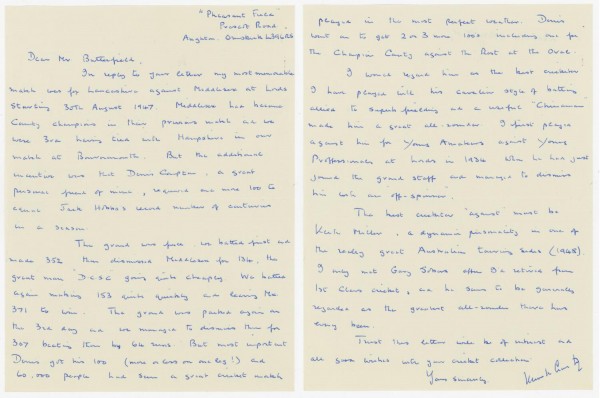 "Pheasant Field"
Prescot Road,
Aughton. Ormskirk L39
Dear Mr Butterfield,
In reply to your letter my most memorable
match was for Lancashire against Middlesex at Lords
starting 30th August 1947. Middlesex had become
County champions in their previous match and we
were 3rd having tied with Hampshire in our
match at Bournemouth. But the additional
incentive was that Denis Compton, a great
personal friend of mine, required one more 100 to
equal Jack Hobbs's record number of centuries
in a season.
The ground was full we batted first and
made 356 then dismissed Middlesex for 136, the
great man DCSC going quite cheaply. We batted
again making 153 quite quickly and leaving Mx
371 to win. The ground was packed again on
the 3rd day and we managed to dismiss them for
307 beating them by 64 runs. But most important
Denis got his 100 (more or less on one leg!) and
60,000 people had seen a great cricket match
played in the most perfect weather. Denis
went on to get 2 or 3 more 100s including one for
the Champion County against the Rest at the Oval.
I would regard him as the best cricketer
I have played with his cavalier style of batting
allied to superb fielding and a useful "Chinaman"
made him a great all-rounder. I first played
against him for Young Amateurs against Young
Professionals at Lords in 1934 when he had just
joined the ground staff and managed to dismiss
him with an off-spinner.
The best cricketer 'against' must be
Keith Miller, a dynamic personality in one of
the really great Australian touring sides (1948)
I only met Gary Sobers after he retired from
1st Class cricket, and he seems to be generally
regarded as the greatest all-rounder there has
every been.
Trust this letter will be of interest and
all good wishes with your cricket collection
Yours sincerely,